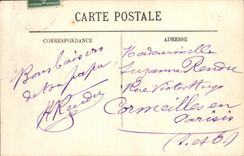 CARTE POSTALE
CORRESPONDANCE
ADRESSE
Bons baisers
de ton papa
HRendu
Mademoiselle
Suzanne Rendu
Rue Victor Hugo
Cormeilles en
Parisis
(S. et O.)